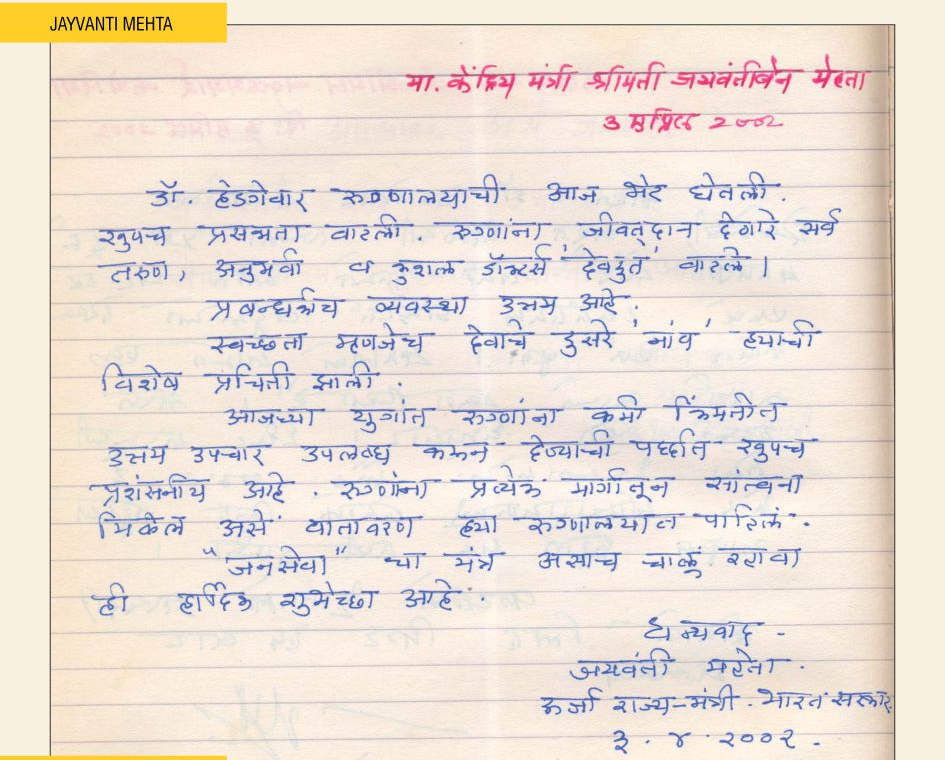 JAYVANTI MEHTA
मा. केंद्रिय मंत्री श्रीमती जयवंतीबेन मेहता
३ एप्रिल २००२
डॉ. हेडगेवार रुग्णालयाची आज भेट घेतली.
खुपच प्रसन्नता वाटली रुग्णांना जीवतदान देणारे सर्व
तरुण, अनुभवी व कुशल डॉक्टर्स 'देवदुत' वाटले।
प्रबन्धकीय व्यवस्था उत्तम आहे.
स्वच्छता म्हणजेच देवाचे दुसरे 'नांव' ह्याची
विशेष प्रचिती झाली.
आजच्या युगांत रुग्णांना कमी किंमतीत
उत्तम उपचार उपलब्ध करून देण्याची पध्दति खुपच
प्रशंसनीय आहे. रुग्णांना प्रत्येक मार्गातून सांत्वना
मिळेल असे वातावरण ह्या रुग्णालयांत पाहिलं.
"जनसेवा" चा मंत्र असाच चालू रहावा
ही हार्दिक शुभेच्छा आहे.
धन्यवाद -
जयवंती महेता.
ऊर्जा राज्य-मंत्री. भारत सरकार
३. ४. २००२. -